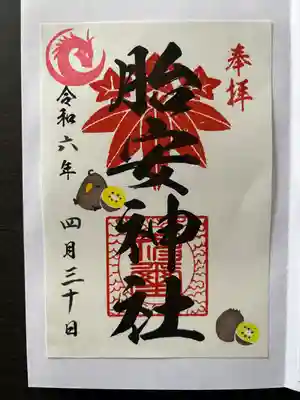 奉拝
胎安神社
令和六年 四月三十日